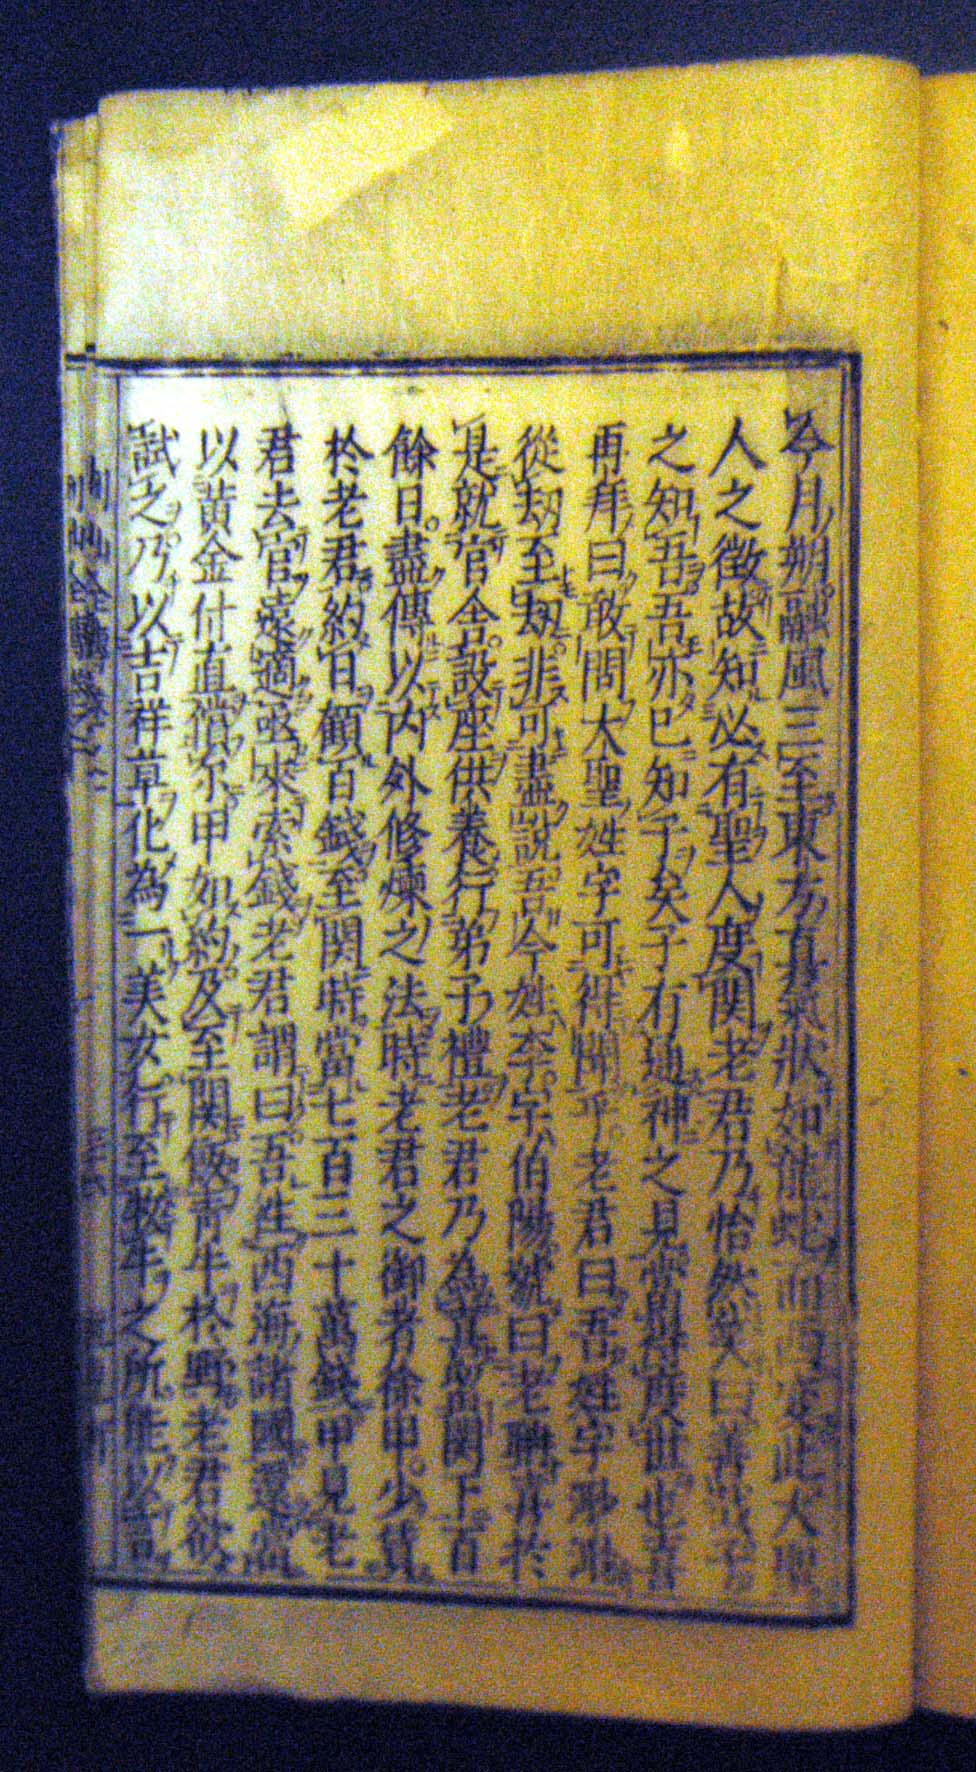 今月朔融風三至東方真氣狀如龍蛇而西度此大聖
人之徴故知必有聖人度関老君乃怡然笑曰善哉子
之知吾吾亦已知子矣子有通神之見當得度世也喜
再拜曰敢問大聖姓字可得聞乎老君曰吾姓字渺渺
從劫至劫非可盡說吾今姓李字伯陽號曰老聃喜於
是就官舎設座供養行弟子禮老君乃為喜留関下百
餘日盡傳以內外修煉之法時老君之御者徐甲少賃
於老君約日顧百錢至関時當七百三十萬錢甲見老
君去官遠適亟來索錢老君謂曰吾往西海諸國還當
以黄金什直償尓甲如約及至関飯青牛於野老君欲
試之乃以吉祥草化為一美女行至牧牛之所